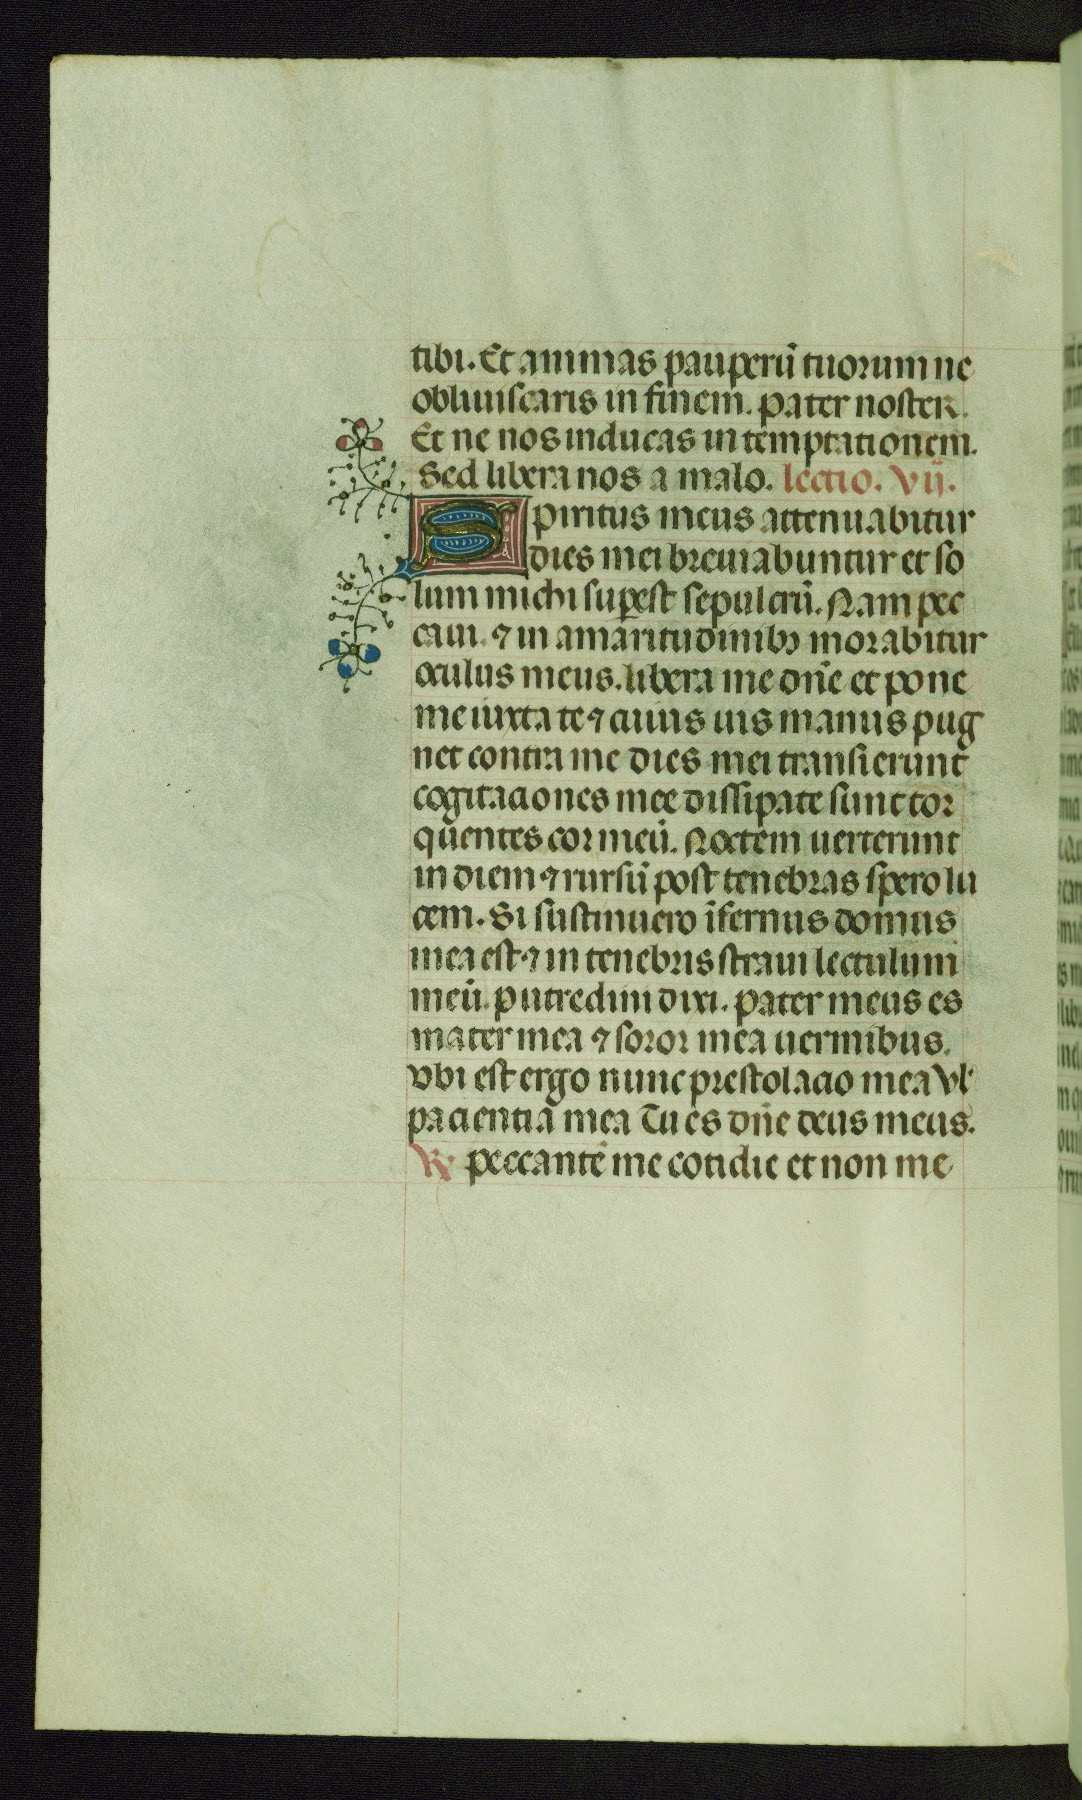 tibi. Et animas pauperū tuorum ne
obliuiscaris in finem. pater noster.
Et ne nos inducas in temptationem.
Sed libera nos a malo. lectio. vij.
Spiritus meus attenuabitur
dies mei breuiabuntur et so
lum michi suꝑest sepulcrū. Nam pec
caui. ⁊ in amaritudinibꝫ morabitur
oculus meus. libera me dn̄e et pone
me iuxta te ⁊ cuiuis uis manus pug
net contra me dies mei transierunt
cogitaciones mee dissipate sunt tor
quentes cor meū. Noctem uerterunt
in diem ⁊ rursū post tenebras spero lu
cem. Si sustinuero īfernus domus
mea est ⁊ in tenebris straui lectulum
meū. putredini dixi. pater meus es
mater mea ⁊ soror mea uermibus.
vbi est ergo nunc prestolacio mea vl'
pacientiā mea Tu es dn̄e deus meus.
℟ peccantē me cotidie et non me